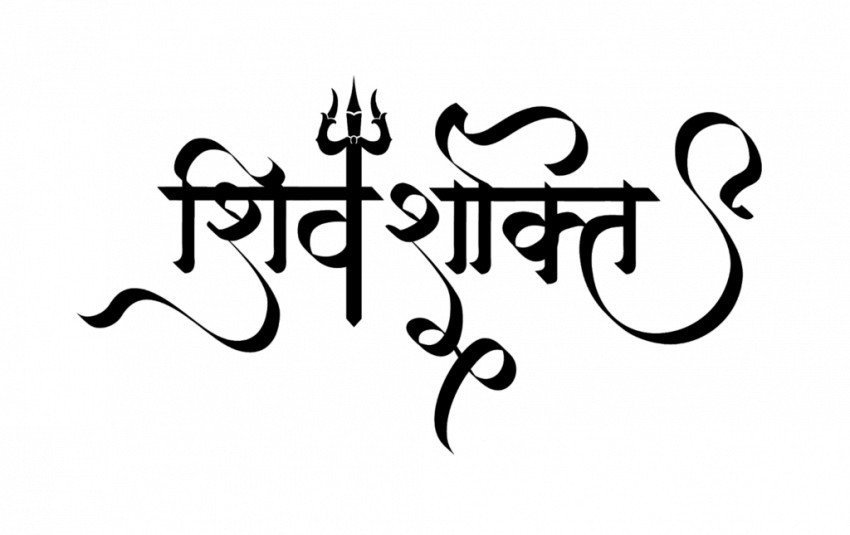 शिव शक्ति